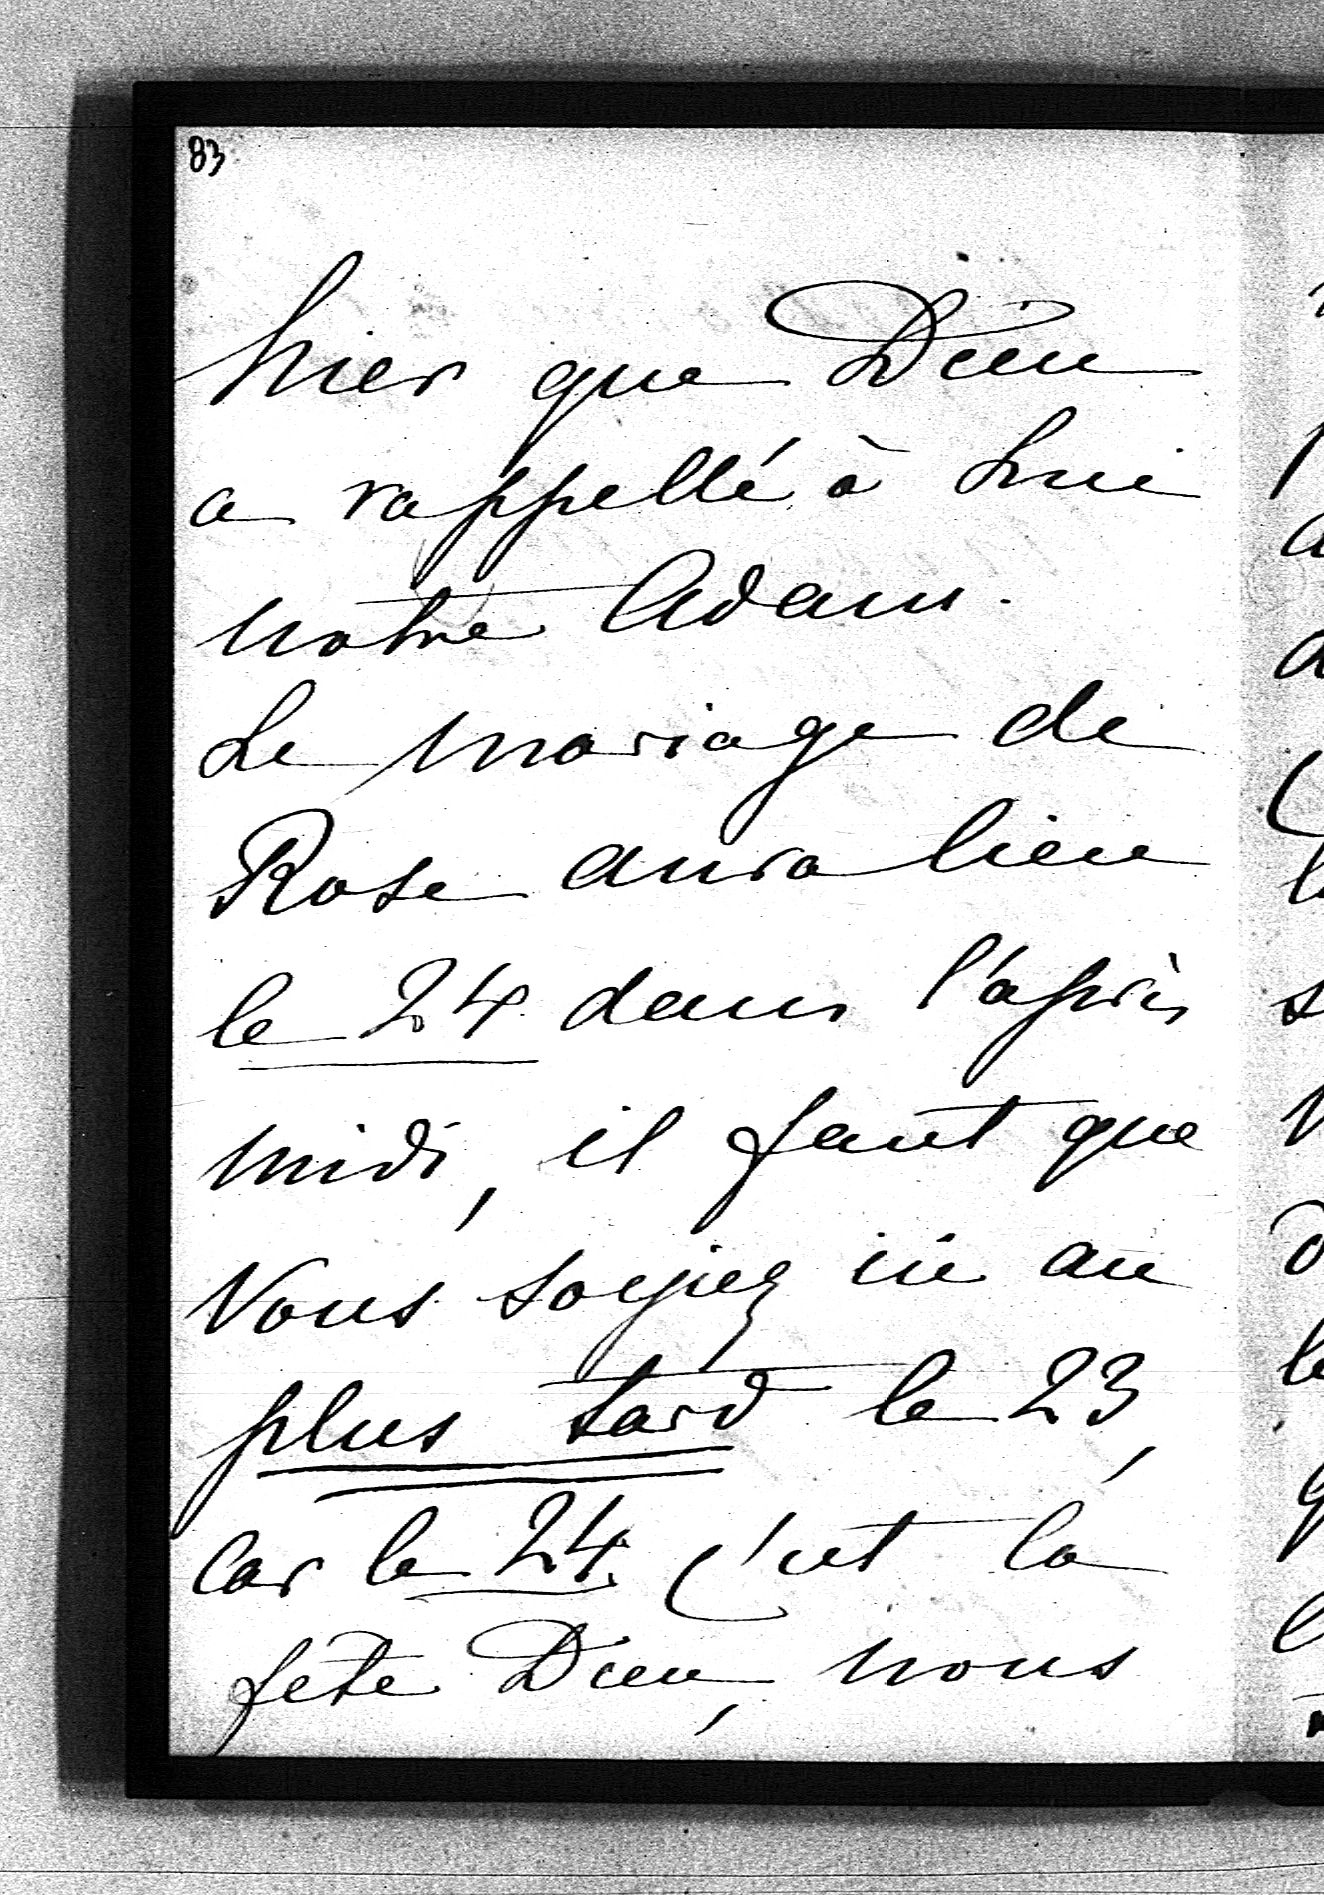 83
hier que Dieu
a rappellé à Lui
notre Adam.
Le mariage de
Rose aura lieu
le 24 dans l'après
midi, il faut que
Vous soyiez ici au
plus tard le 23,
Car le 24 c'est la
fête Dieu, nous